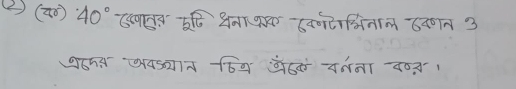 (২) (ক) 40° কোণের দুটি ধনাত্মক কোটার্মিনাল কোণ ও
এদের অবস্থান চিত্র এঁকে বর্ননা কর।